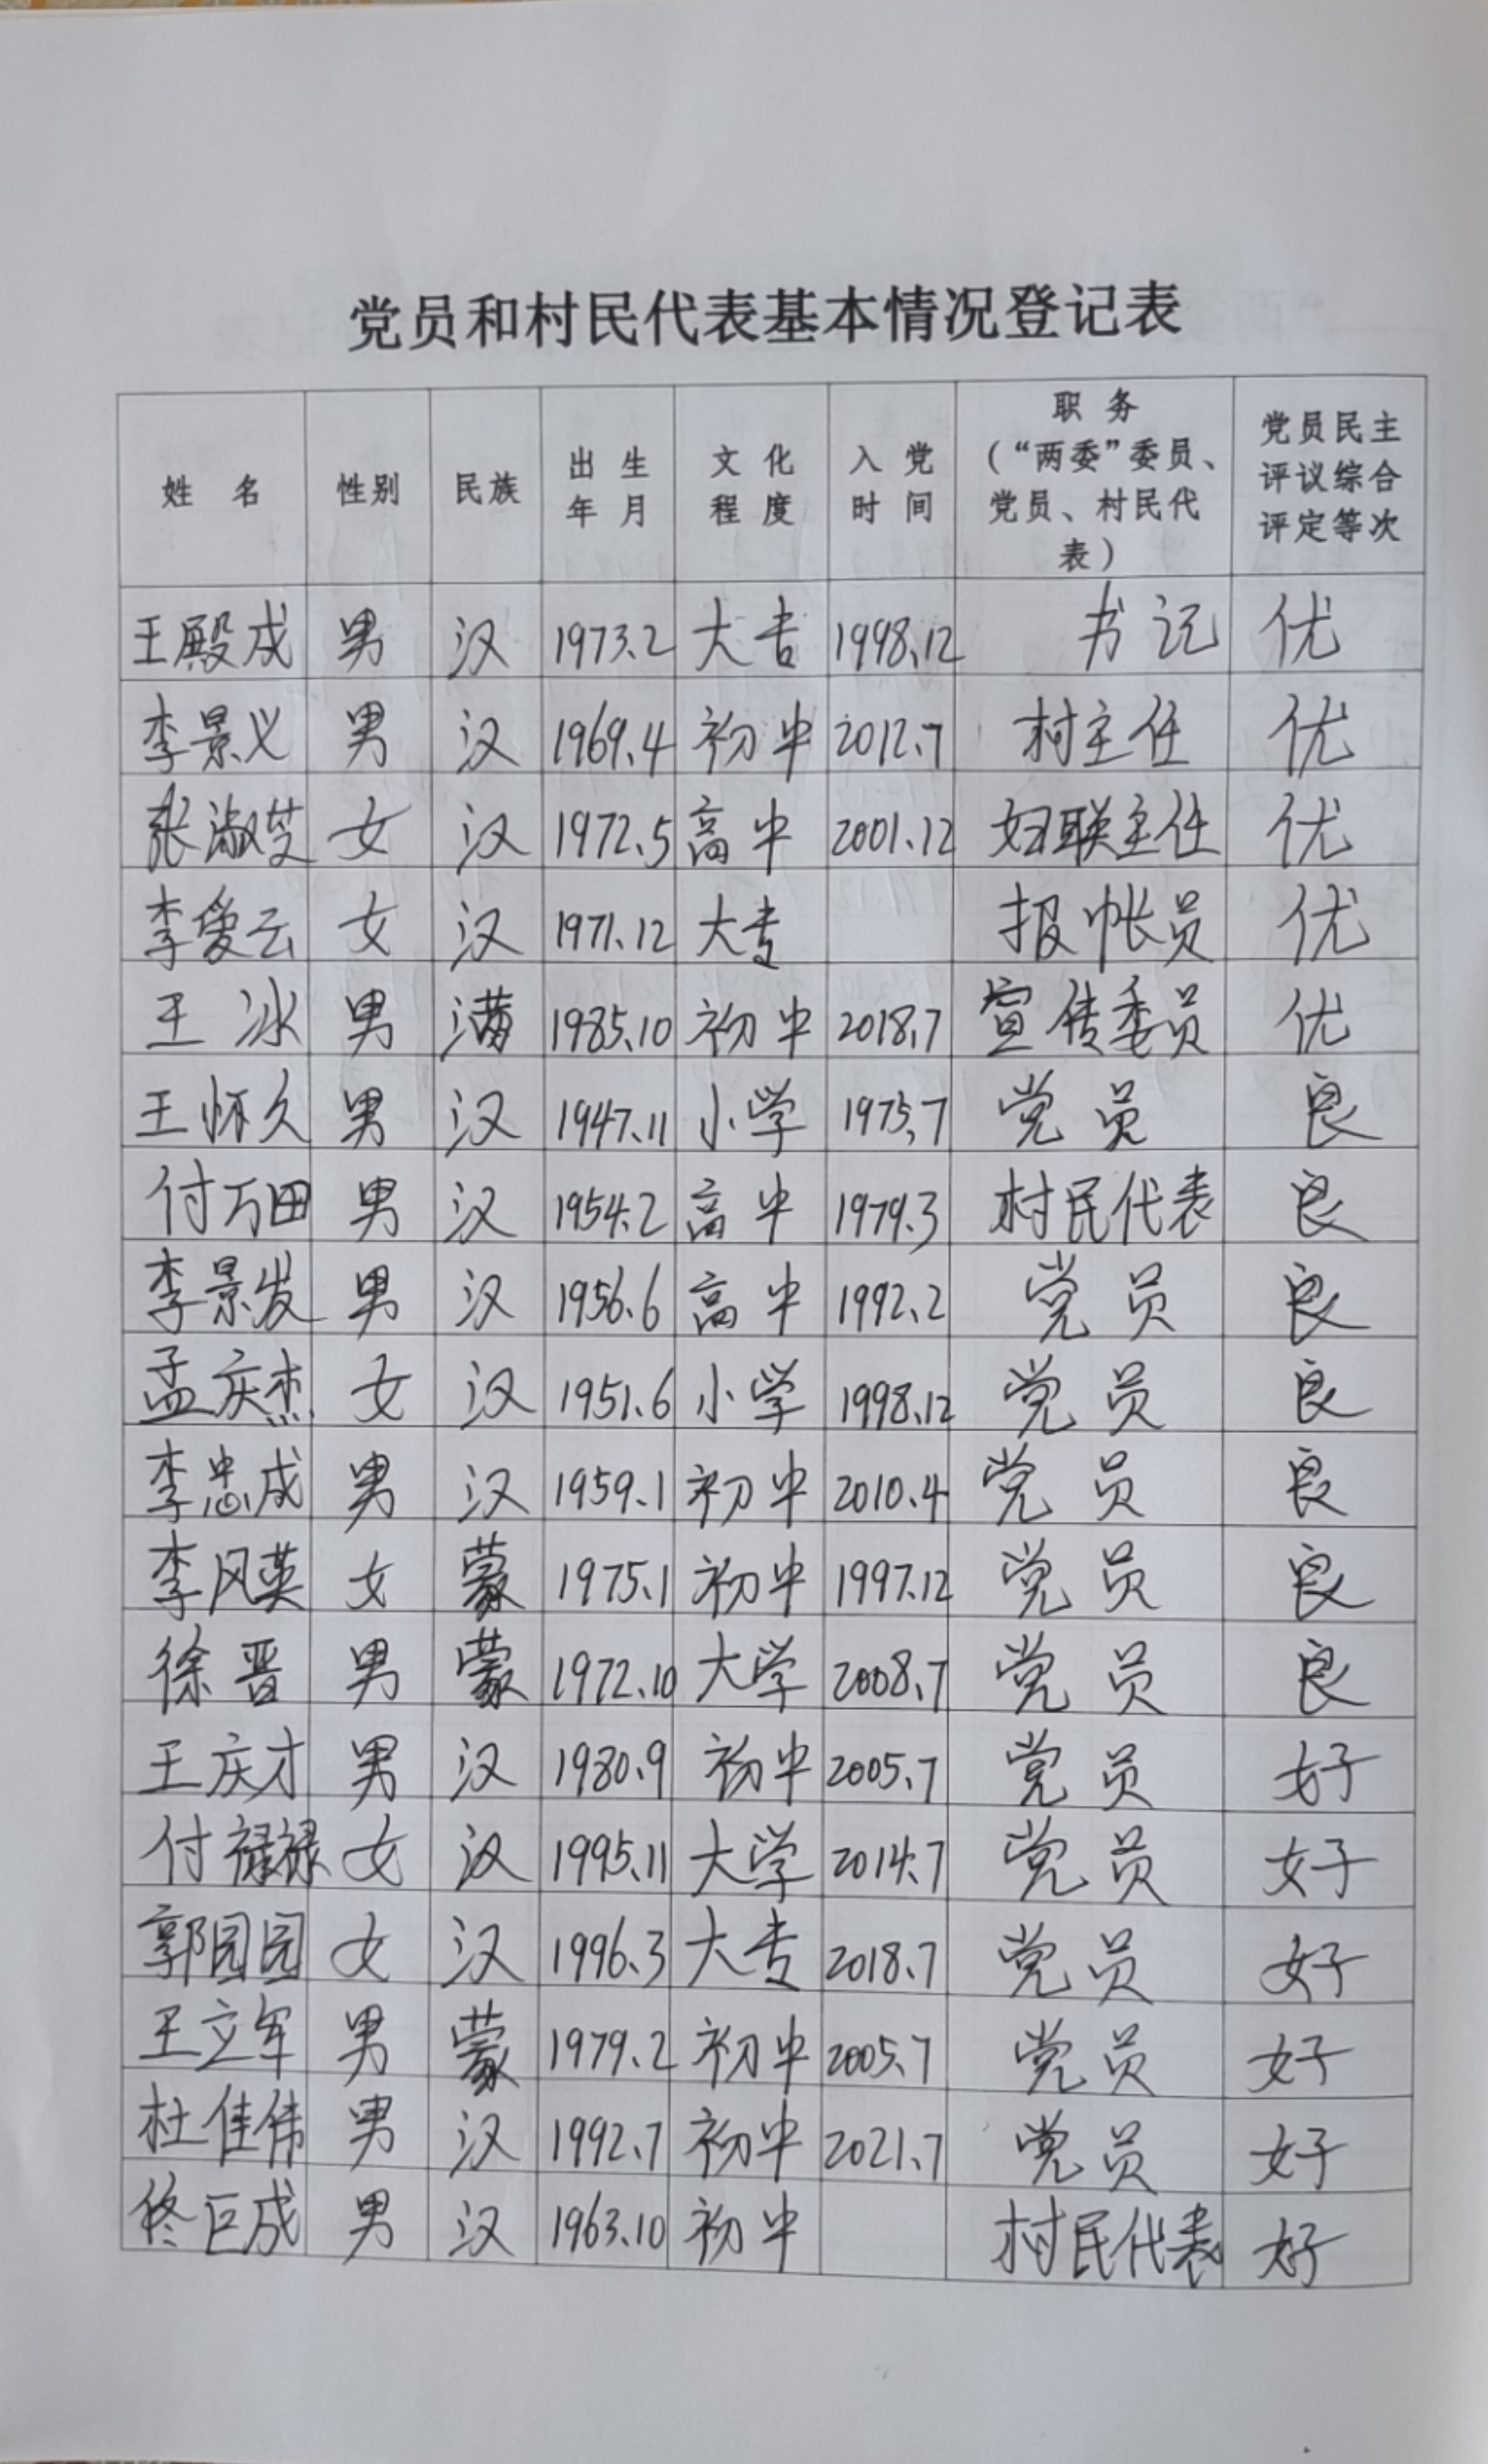 党员和村民代表基本情况登记表
姓 名 性别 民族 出 生 年 月 文 化 程 度 入 党 时 间 职 务 （“两委”委员、党员、村民代表） 党员民主评议综合评定等次
王殿成 男 汉 1973.2 大专 1998.12 书记 优
李景义 男 汉 1969.4 初中 2012.7 村主任 优
张淑芝 女 汉 1972.5 高中 2001.12 妇联主任 优
李爱云 女 汉 1971.12 大专 报帐员 优
王冰 男 满 1985.10 初中 2018.7 宣传委员 优
王怀久 男 汉 1947.11 小学 1975.7 党员 良
付万田 男 汉 1954.2 高中 1979.3 村民代表 良
李景发 男 汉 1956.6 高中 1992.2 党员 良
孟庆杰 女 汉 1951.6 小学 1998.12 党员 良
李忠成 男 汉 1959.1 初中 2010.4 党员 良
李风英 女 蒙 1975.1 初中 1997.12 党员 良
徐晋 男 蒙 1972.10 大学 2008.7 党员 良
王庆才 男 汉 1980.9 初中 2005.7 党员 好
付禄禄 女 汉 1995.11 大学 2014.7 党员 好
郭园园 女 汉 1996.3 大专 2018.7 党员 好
王立军 男 蒙 1979.2 初中 2005.7 党员 好
杜佳伟 男 汉 1992.7 初中 2021.7 党员 好
佟巨成 男 汉 1963.10 初中 村民代表 好